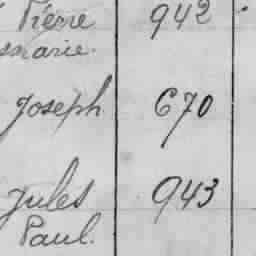 Pierre 942
Joseph 670
Jules 943
Paul.